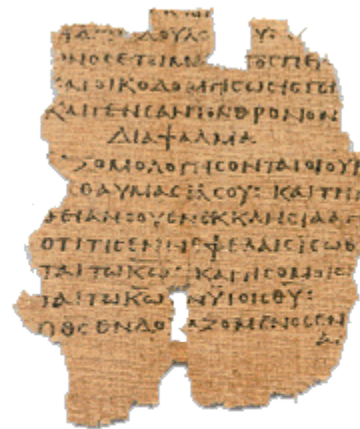 ΔΟΥΛΩ
ΩΝΟΣΕΤΟΙΜΑ ΤΟΣΠΕΡ
ΚΑΙΟΙΚΟΔΟΜΗСΩΕΙСΓΕΝ
ΚΑΙΓΕΝΕΑΝΤΟΝΘΡΟΝΟΝ
ΔΙΑΨΑΛΜΑ
ΞΟΜΟΛΟΓΗСΟΝΤΑΙΟΙΟΥΡ
ΘΑΥΜΑСΙΑСΟΥ: ΚΑΙΤΗΝ
ΘΕΙΑΝСΟΥΕΝΕΚΚΛΗСΙΑΑΓ
ΟΤΙΤΙСΕΝΝΕΦΕΛΑΙСΙСΩΘ
ΤΑΙΤΩΚ̅Ω̅: ΚΑΙΤΙСΟΜΟΙΩ
ΤΑΙΤΩΚ̅Ω̅ ΕΝΥΙΟΙСΘ̅Υ̅:
ΟΘ̅С̅ΕΝΔΟΞΑΖΟΜΕΝΟСΕΝ